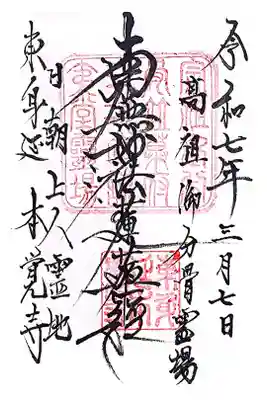 令和七年三月七日
高祖御分骨霊場
南無妙法蓮華経
日朝上人霊地
東身延本覚寺